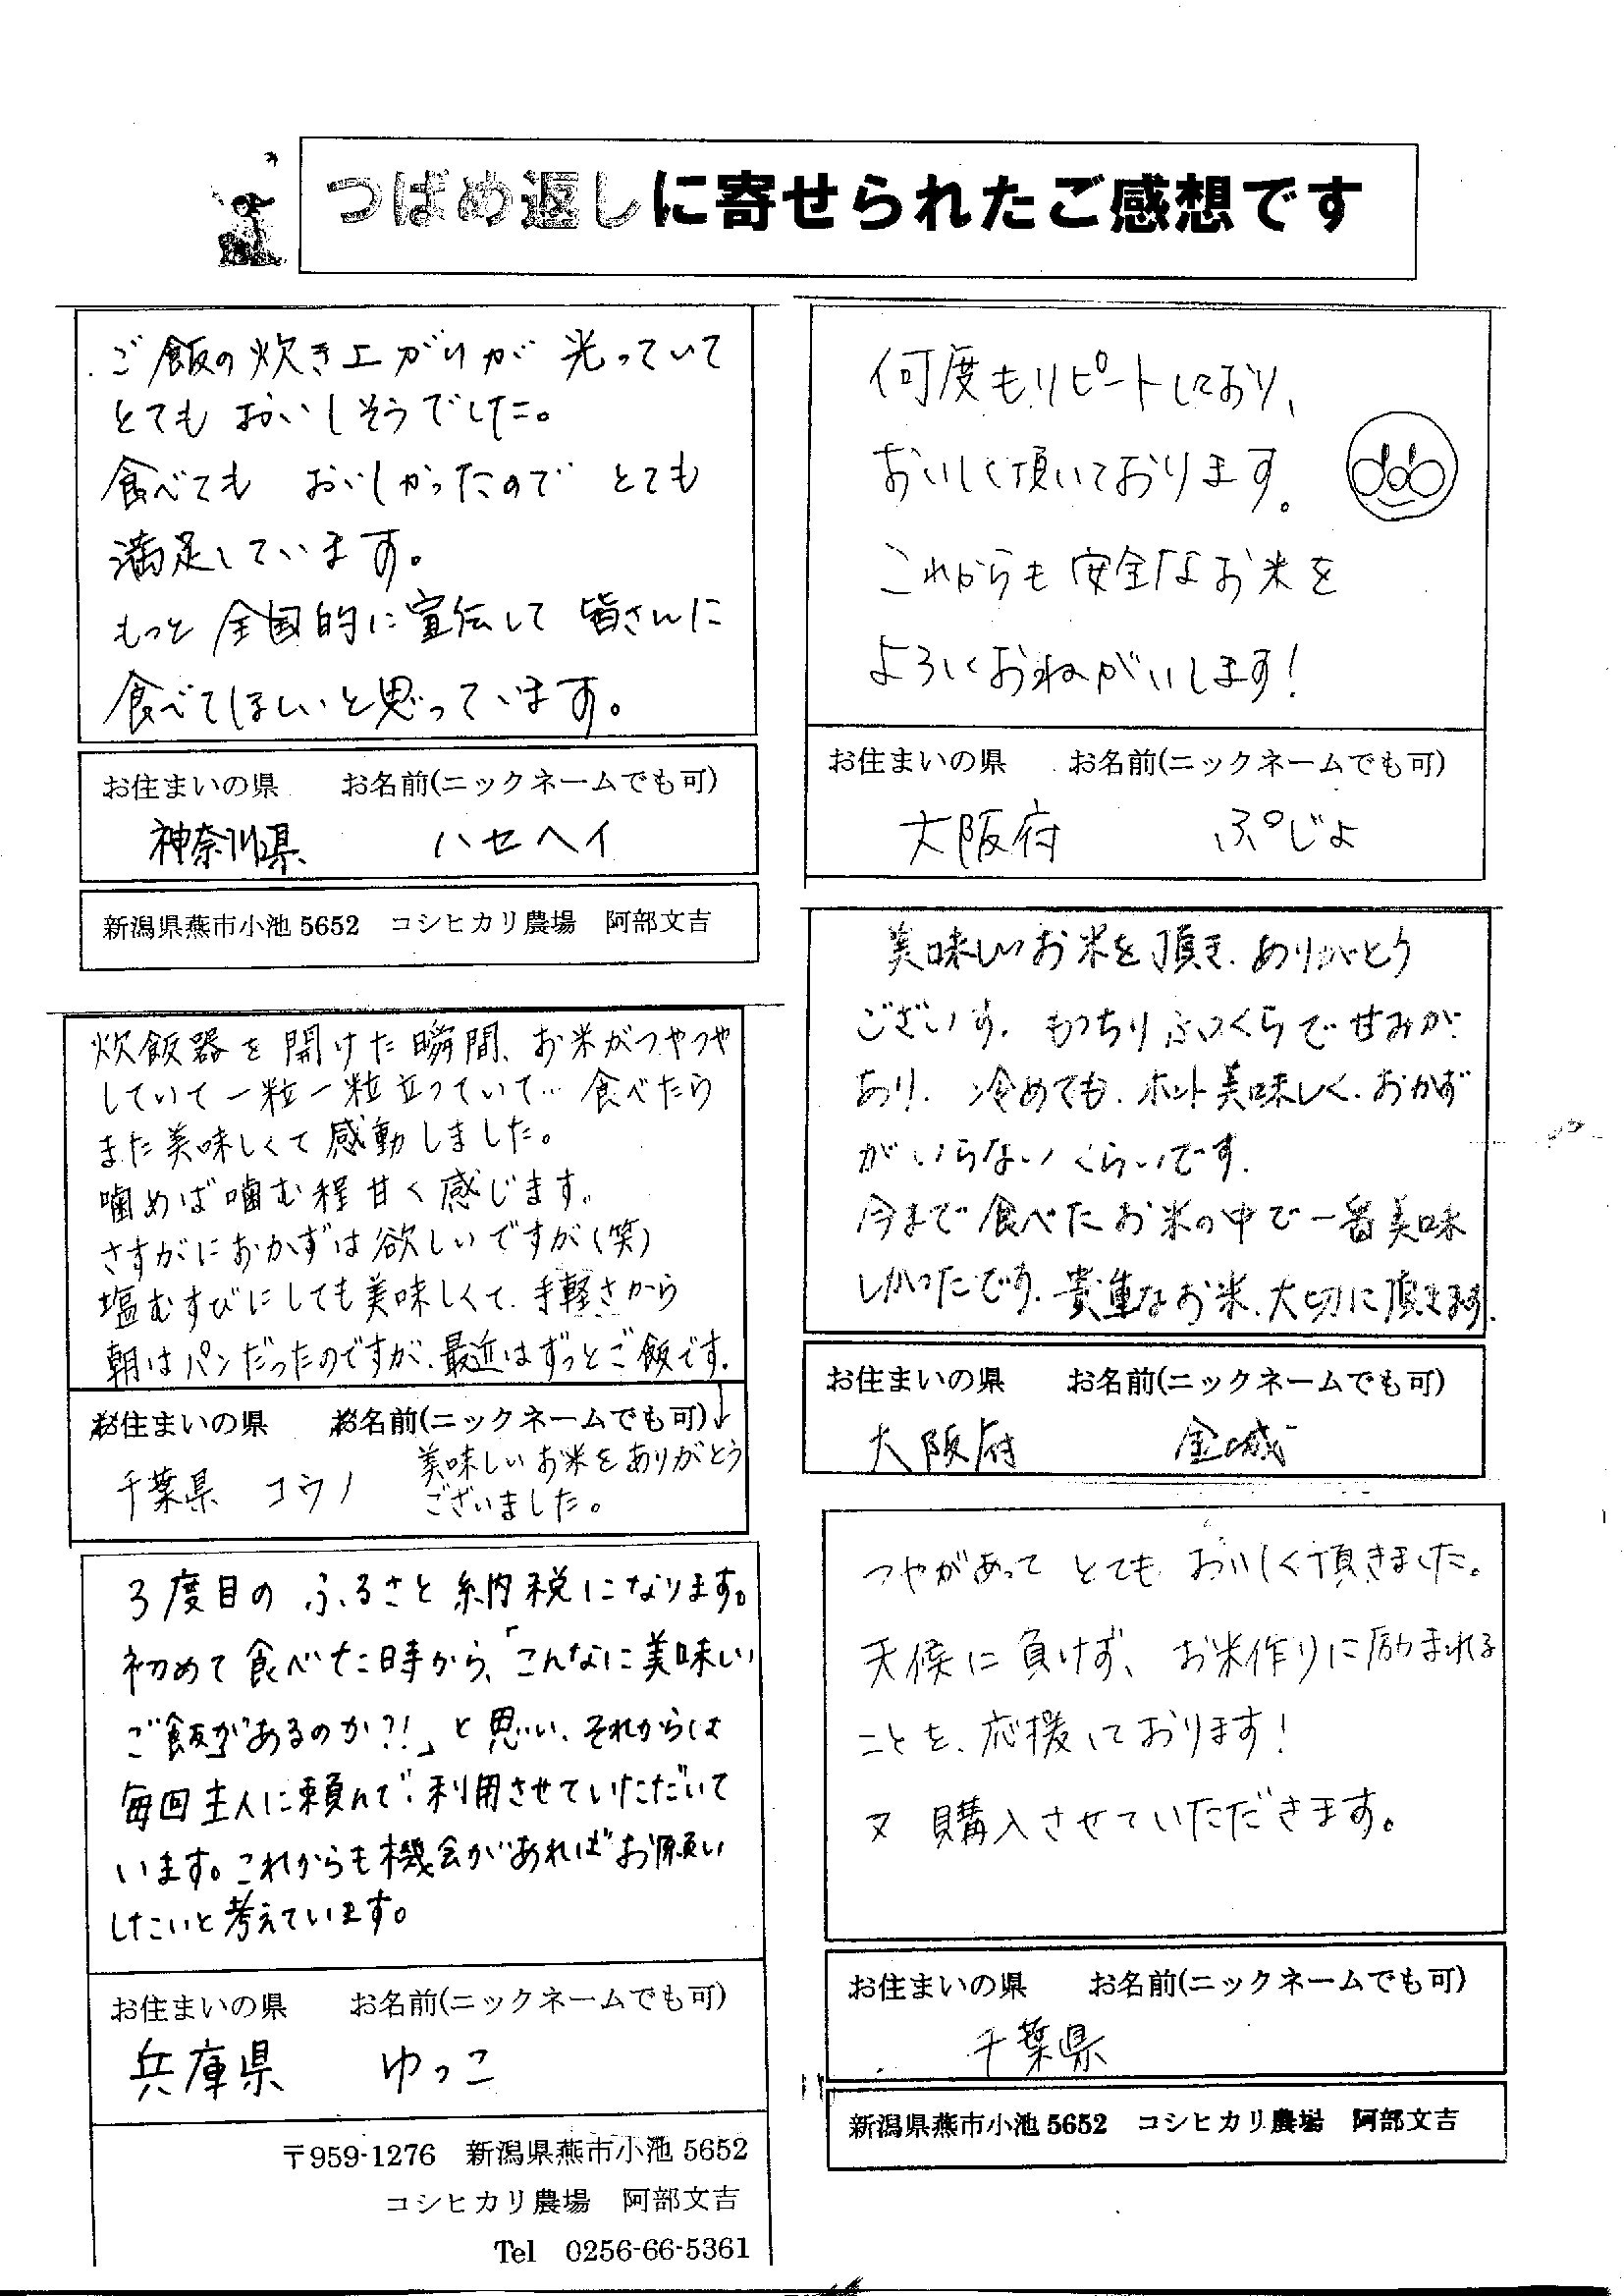 つばめ返しに寄せられたご感想です
ご飯の炊き上がりが光っていて
とてもおいしそうでした。
食べても おいしかったので とても
満足しています。
もっと全国的に宣伝して 皆さんに
食べてほしいと思っています。
お住まいの県 お名前(ニックネームでも可)
神奈川県 ハセヘイ
新潟県燕市小池5652 コシヒカリ農場 阿部文吉
炊飯器を開けた瞬間、お米がつやつや
していて一粒一粒立っていて… 食べたら
また美味しくて感動しました。
噛めば噛む程甘く感じます。
さすがにおかずは欲しいですが(笑)
塩むすびにしても美味しくて、手軽さから
朝はパンだったのですが、最近はずっとご飯です。
お住まいの県 お名前(ニックネームでも可)↓
千葉県 コウノ 美味しいお米をありがとう
ございました。
3度目の ふるさと納税になります。
初めて食べた時から、「こんなに美味しい
ご飯があるのか?!」と思い、それからは
毎回主人に頼んで、利用させていただいて
います。これからも機会があればお願い
したいと考えています。
お住まいの県 お名前(ニックネームでも可)
兵庫県 ゆっこ
〒959-1276 新潟県燕市小池5652
コシヒカリ農場 阿部文吉
Tel 0256-66-5361
何度もリピートしており、
おいしく頂いております。
これからも安全なお米を
よろしくおねがいします!
お住まいの県 お名前(ニックネームでも可)
大阪府 ぷじょ
美味しいお米を頂き、ありがとう
ございます。もっちりふっくらで甘みが
あり、冷めても、ホント美味しく、おかず
がいらないくらいです。
今まで食べたお米の中で一番美味
しかったです。貴重なお米、大切に頂きます。
お住まいの県 お名前(ニックネームでも可)
大阪府 金城
つやがあって とても おいしく頂きました。
天候に負けず、お米作りに励まれる
ことを、応援しております!
又 購入させていただきます。
お住まいの県 お名前(ニックネームでも可)
千葉県
新潟県燕市小池5652 コシヒカリ農場 阿部文吉